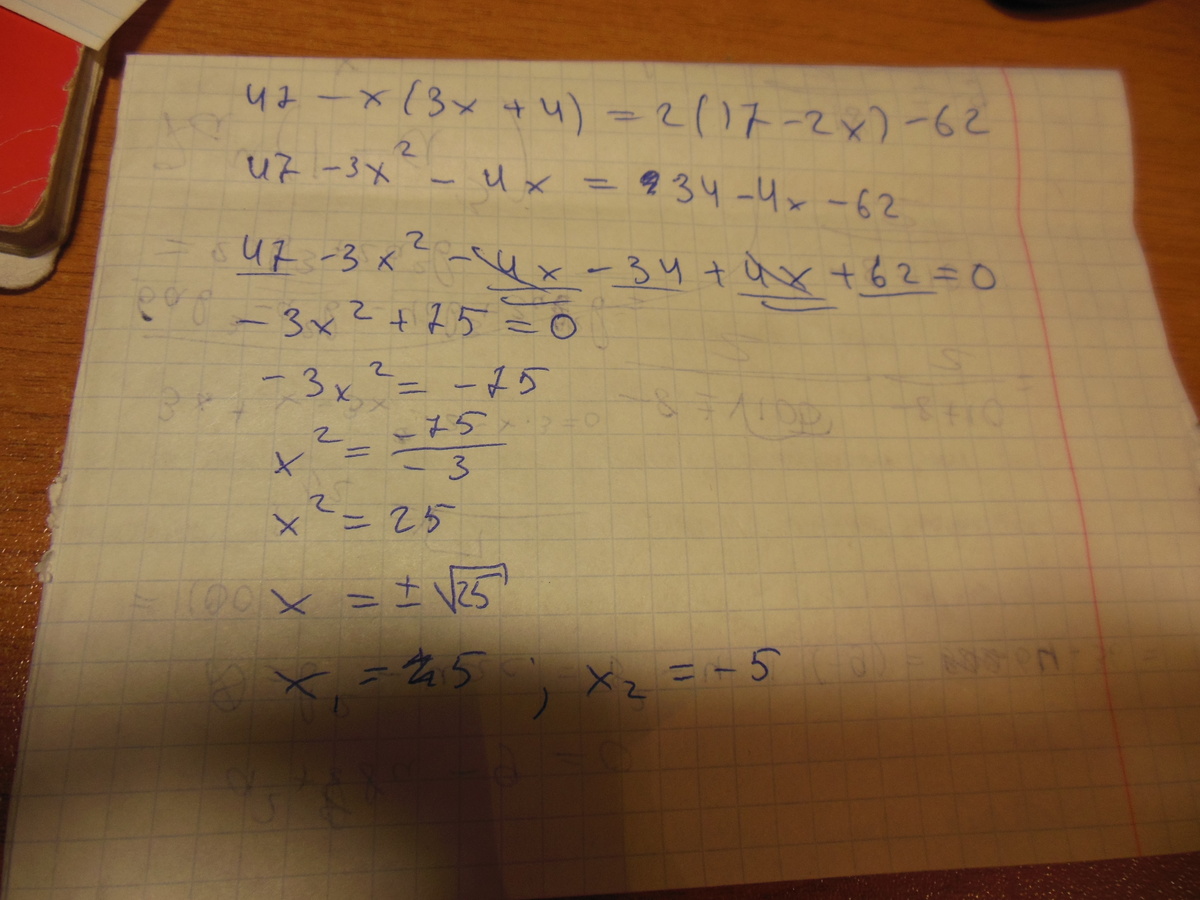 47 - x(3x + 4) = 2(17 - 2x) - 62
47 - 3x² - 4x = 34 - 4x - 62
47 - 3x² - 4x - 34 + 4x + 62 = 0
- 3x² + 75 = 0
- 3x² = - 75
x² = -75/-3
x² = 25
x = ± √25
x₁ = 5 ; x₂ = - 5